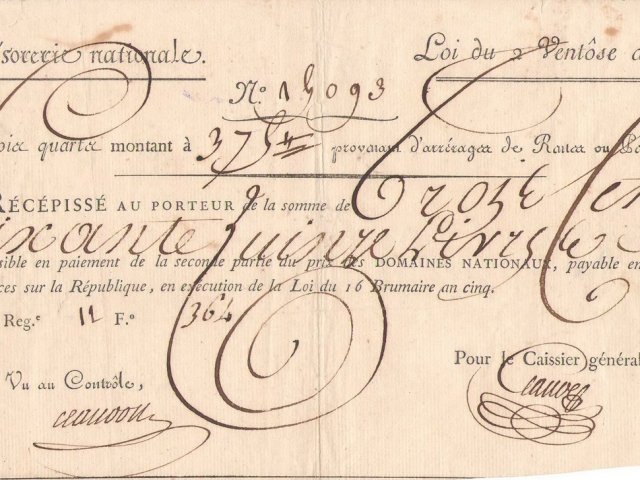 sorerie nationale. Loi du 2 Ventôse a
N.º 15093
pia quarta montant à 375 ₶ provenant d'arrérages de Rentes ou Pe
RÉCÉPISSÉ AU PORTEUR de la somme de Trois Cen
ixante Quinze Livres
sible en paiement de la seconde partie du prix des DOMAINES NATIONAUX, payable en
ces sur la République, en exécution de la Loi du 16 Brumaire an cinq.
Reg.e 11 F.º 364
Pour le Caissier général
Vu au Contrôle,